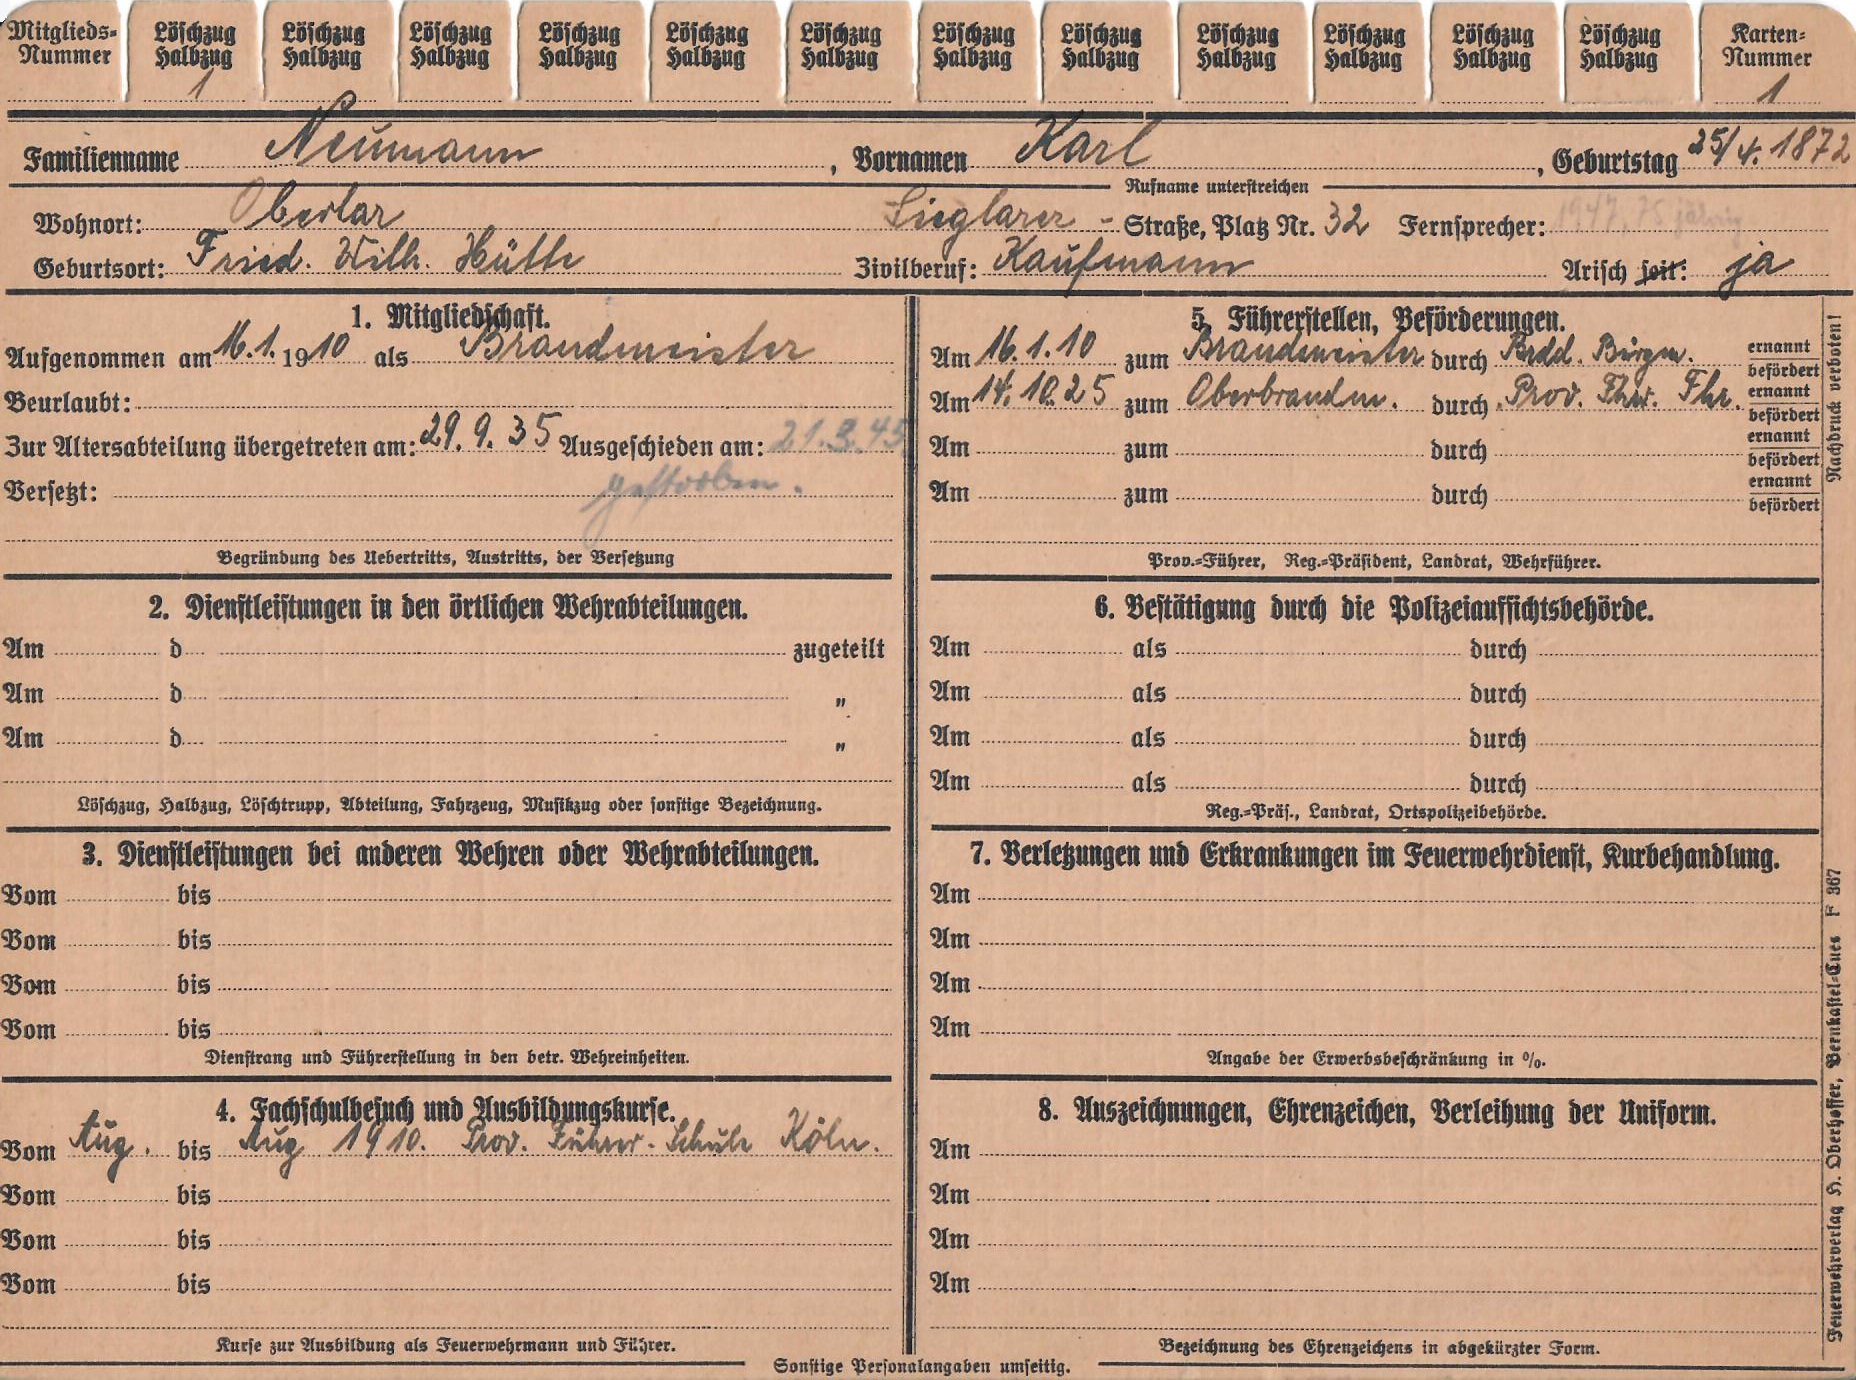 Mitglieds=
Nummer
Löschzug
Halbzug
1
Löschzug
Halbzug
Löschzug
Halbzug
Löschzug
Halbzug
Löschzug
Halbzug
Löschzug
Halbzug
Löschzug
Halbzug
Löschzug
Halbzug
Löschzug
Halbzug
Löschzug
Halbzug
Löschzug
Halbzug
Löschzug
Halbzug
Karten=
Nummer
1
Familienname Neumann, Vornamen Karl, Geburtstag 25/4. 1872
Rufname unterstreichen
Wohnort: Oberlar Sieglarer - Straße, Platz Nr. 32 Fernsprecher: 1947, 75 jährig
Geburtsort: Fried. Wilh. Hütte Zivilberuf: Kaufmann Arisch seit: ja
1. Mitgliedschaft.
Aufgenommen am 16.1.1910 als Brandmeister
Beurlaubt:
Zur Altersabteilung übergetreten am: 29.9.35 Ausgeschieden am: 21.3.45
Versetzt: gestorben.
Begründung des Uebertritts, Austritts, der Versetzung
2. Dienstleistungen in den örtlichen Wehrabteilungen.
Am d zugeteilt
Am d „
Am d „
Löschzug, Halbzug, Löschtrupp, Abteilung, Fahrzeug, Musikzug oder sonstige Bezeichnung.
3. Dienstleistungen bei anderen Wehren oder Wehrabteilungen.
Vom bis
Vom bis
Vom bis
Vom bis
Dienstrang und Führerstellung in den betr. Wehreinheiten.
4. Fachschulbesuch und Ausbildungskurse.
Vom Aug. bis Aug 1910. Prov. Führer-Schule Köln.
Vom bis
Vom bis
Vom bis
Kurse zur Ausbildung als Feuerwehrmann und Führer.
5. Führerstellen, Beförderungen.
Am 16.1.10 zum Brandmeister durch Bürgm. ernannt befördert
Am 14.10.25 zum Oberbrandm. durch Prov. Fhr. ernannt befördert
Am zum durch ernannt befördert
Am zum durch ernannt befördert
Prov.=Führer, Reg.=Präsident, Landrat, Wehrführer.
6. Bestätigung durch die Polizeiaufsichtsbehörde.
Am als durch
Am als durch
Am als durch
Am als durch
Reg.=Präs., Landrat, Ortspolizeibehörde.
7. Verletzungen und Erkrankungen im Feuerwehrdienst, Kurbehandlung.
Am
Am
Am
Am
Angabe der Erwerbsbeschränkung in %.
8. Auszeichnungen, Ehrenzeichen, Verleihung der Uniform.
Am
Am
Am
Am
Bezeichnung des Ehrenzeichens in abgekürzter Form.
Sonstige Personalangaben umseitig.
Nachdruck verboten!
Feuerwehrverlag H. Oberhoffer, Bernkastel=Cues F 367